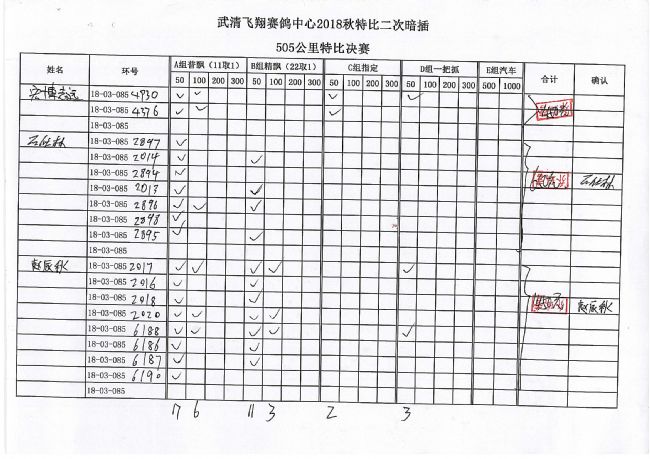 武清飞翔赛鸽中心2018秋特比二次暗插
505公里特比决赛
姓名 环号 A组普飘（11取1） B组精飘（22取1） C组指定 D组一把抓 E组汽车 合计 确认
50 100 200 300 50 100 200 300 50 100 200 300 50 100 200 300 500 1000
宏博志远 18-03-085 4930 ✓ ✓ ✓ ✓
18-03-085 4376 ✓ ✓ ✓
18-03-085
18-03-085 2897 ✓
18-03-085 2014 ✓ ✓
18-03-085 2894 ✓
18-03-085 2013 ✓ ✓
18-03-085 2896 ✓ ✓ ✓
18-03-085 2898 ✓
18-03-085 2895 ✓ ✓
18-03-085
赵辰秋 18-03-085 2017 ✓ ✓ ✓ ✓ ✓
18-03-085 2016 ✓ ✓
18-03-085 2018 ✓ ✓
18-03-085 2020 ✓ ✓ ✓ ✓ 赵辰秋
18-03-085 6188 ✓ ✓ ✓ ✓ ✓
18-03-085 6186 ✓ ✓
18-03-085 6187 ✓ ✓
18-03-085 6190 ✓
18-03-085
17 6 11 3 2 3